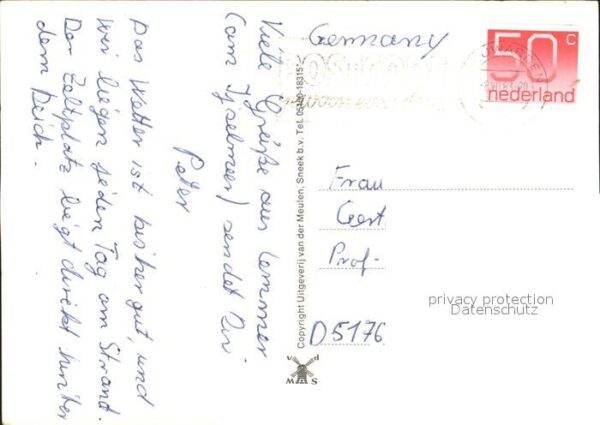 Viele Grüße aus Lemmer
(am Ijselmeer) sendet Dir
Peter
Das Wetter ist bisher gut, und
wir liegen jeden Tag am Strand.
Der Zeltplatz liegt direkt hinter
dem Deich.
Copyright Uitgeverij van der Meulen, Sneek b.v. Tel. 05150-18315
v d
M S
Germany
50 c
nederland
Frau
Gert
Prof-
D 5176
privacy protection
Datenschutz